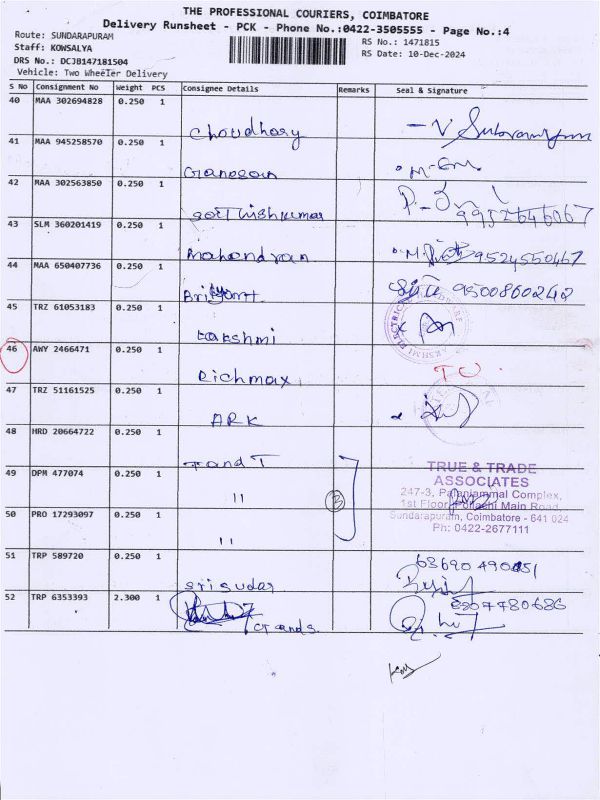 THE PROFESSIONAL COURIERS, COIMBATORE
Delivery Runsheet - PCK - Phone No.:0422-3505555 - Page No.:4
Route: SUNDARAPURAM
RS No.: 1471815
Staff: KOWSALYA
RS Date: 10-Dec-2024
DRS No.: DCJB147181504
Vehicle: Two Wheeler Delivery
S No Consignment No Weight PCS Consignee Details Remarks Seal & Signature
40 MAA 302694828 0.250 1
Choudhary
41 MAA 945258570 0.250 1
Ganesan
42 MAA 302563850 0.250 1
Sathishkumar
9952646067
43 SLM 360201419 0.250 1
Mahendran 9524550467
44 MAA 650407736 0.250 1
9500860242
45 TRZ 61053183 0.250 1
Lakshmi
46 AWY 2466471 0.250 1
Richmax
47 TRZ 51161525 0.250 1
ARK
48 HRD 20664722 0.250 1
T and T
49 DPM 477074 0.250 1
"
3
50 PRO 17293097 0.250 1
"
TRUE & TRADE
ASSOCIATES
247-3, Palaniammal Complex,
1st Floor, Pollachi Main Road,
Sundarapuram, Coimbatore - 641 024
Ph: 0422-2677111
51 TRP 589720 0.250 1
Srisudar
52 TRP 6353393 2.300 1
8207780686